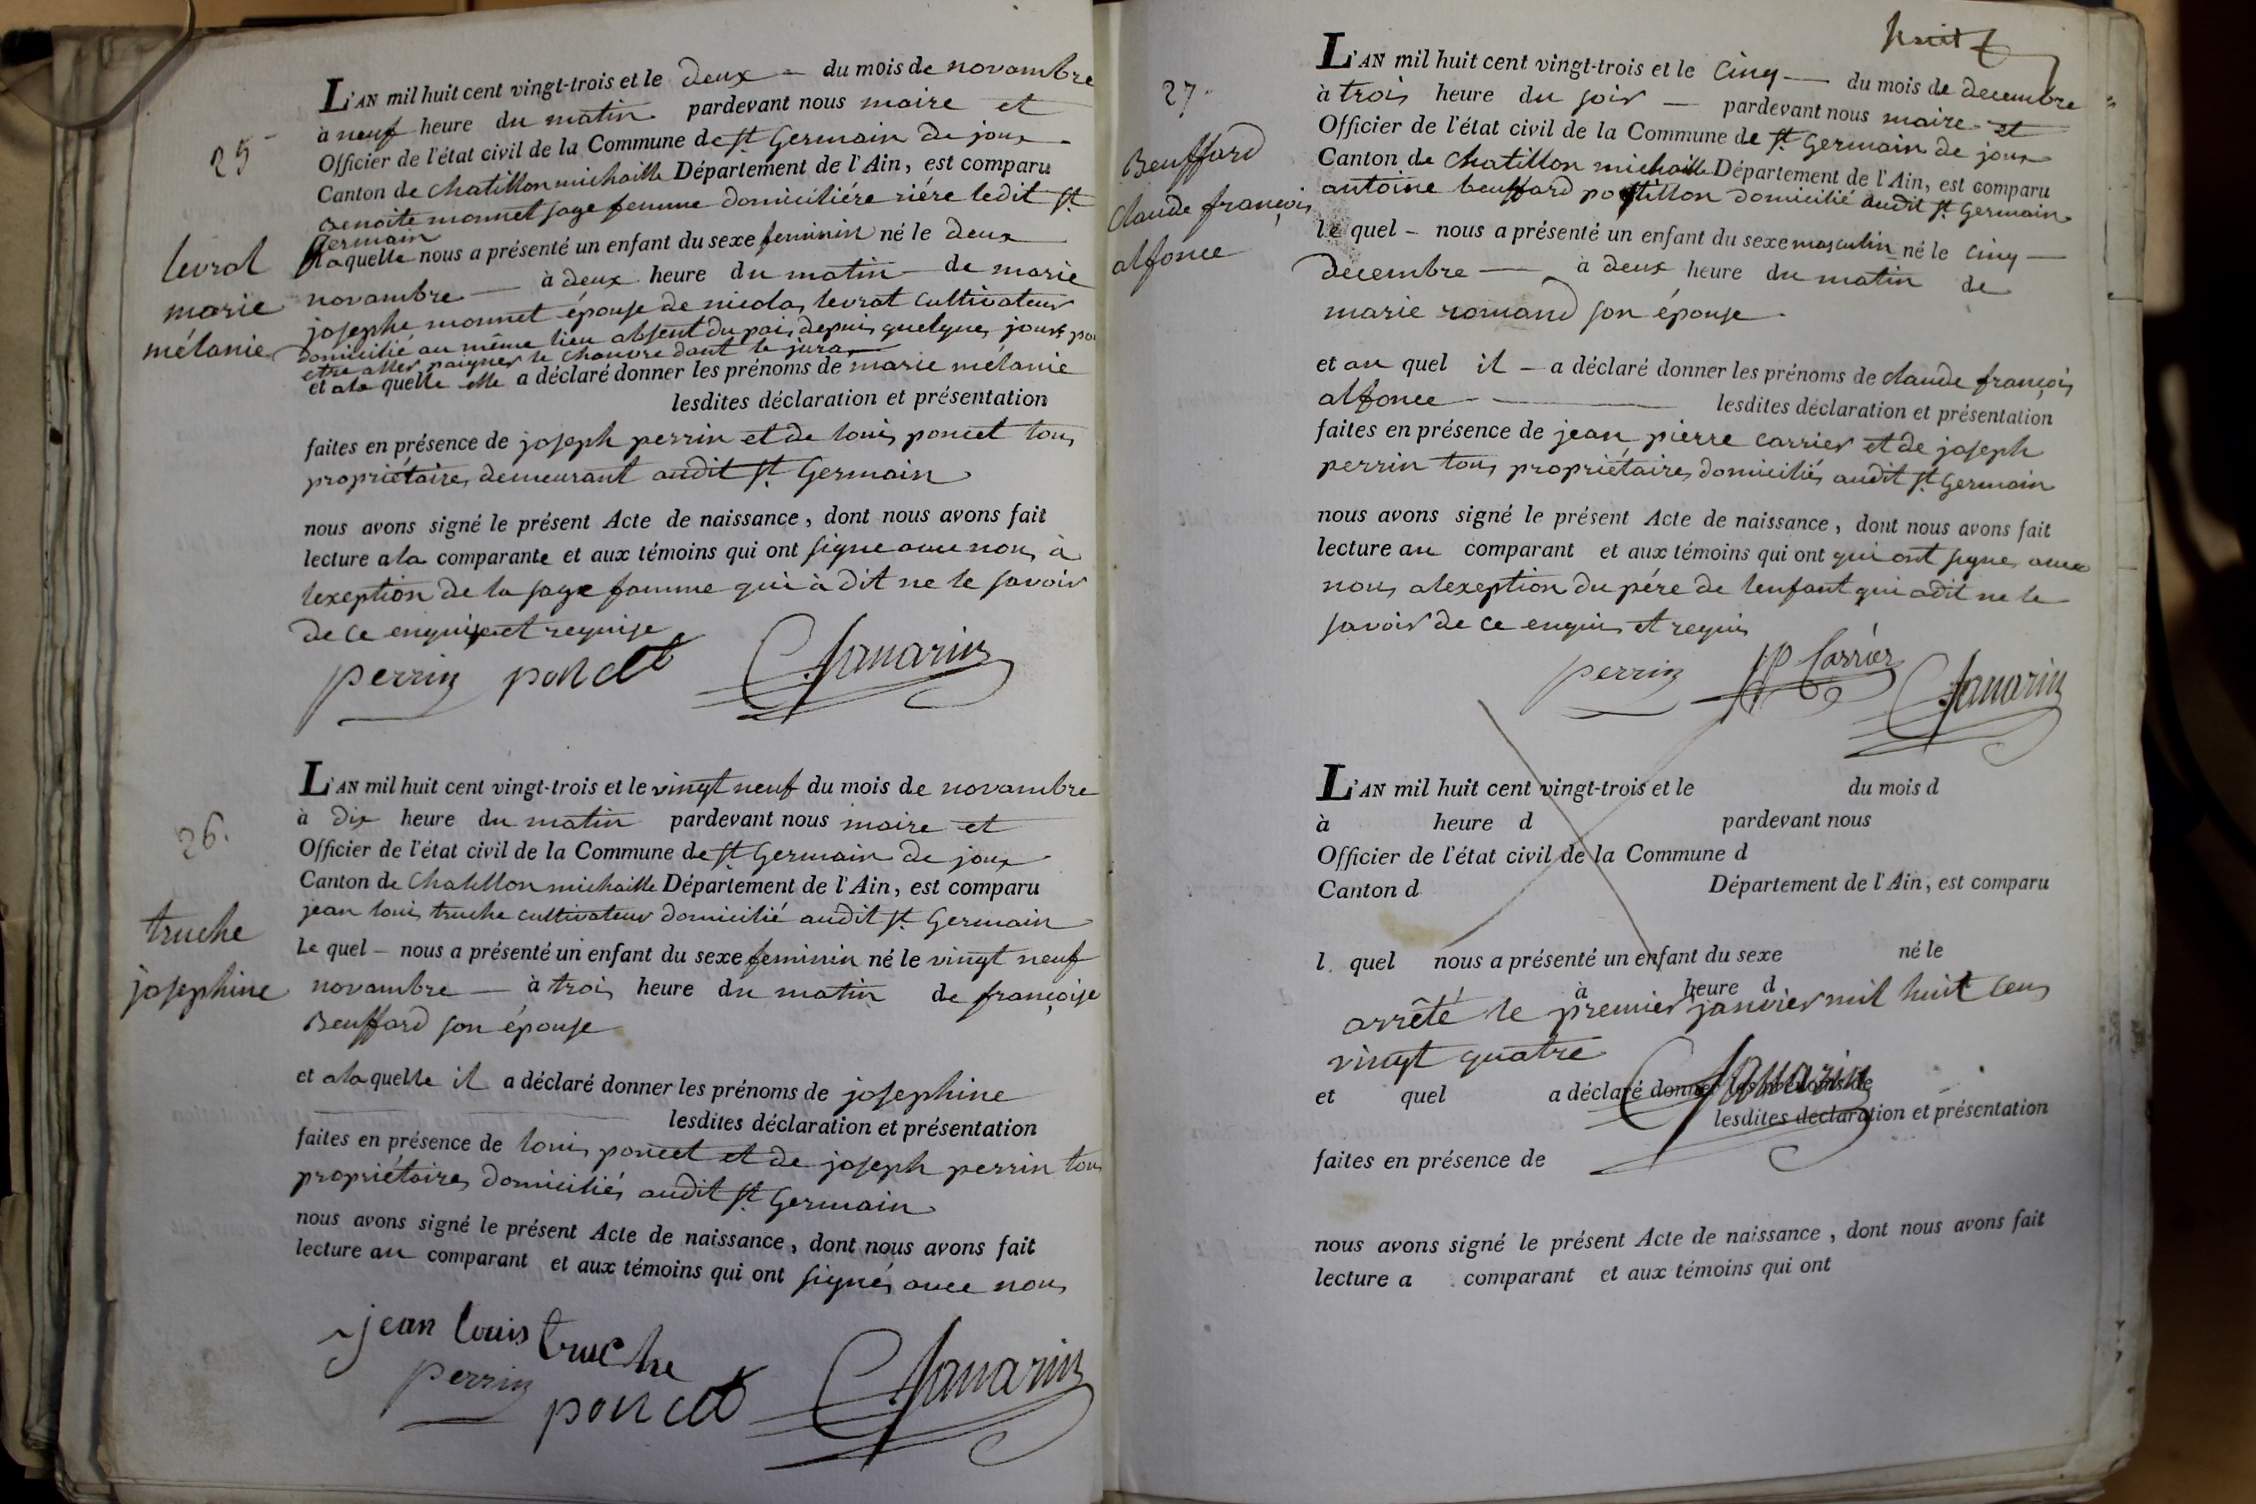 25
levrat
marie
mélanie
L'AN mil huit cent vingt-trois et le deux — du mois de novambre
à neuf heure du matin pardevant nous maire et
Officier de l'état civil de la Commune de St Germain de joux
Canton de Chatillon michaille Département de l'Ain, est comparu
Benoite monnet sage femme domiciliére riére ledit St
Germain
laquelle nous a présenté un enfant du sexe feminin né le deux
novambre — à deux heure du matin — de marie
josephe monnet épouse de nicolas levrat cultivateur
domicilié au même lieu absent du pais depuis quelques jours pour
etre aller paigner le chanvre dant le jura
et ala quelle elle a déclaré donner les prénoms de marie mélanie
lesdites déclaration et présentation
faites en présence de joseph perrin et de louis poncet tous
propriétaires demeurant audit St Germain
nous avons signé le présent Acte de naissance, dont nous avons fait
lecture ala comparante et aux témoins qui ont signe avec nous à
lexeption de la sage famme qui à dit ne le savoir
de ce enquise et requise
perrin poncet C. Savarin
26.
truche
josephine
L'AN mil huit cent vingt-trois et le vingt neuf du mois de novambre
à dix heure du matin pardevant nous maire et
Officier de l'état civil de la Commune de St Germain de joux
Canton de Chatillon michaille Département de l'Ain, est comparu
jean louis truche cultivateur domicilié audit St Germain
Le quel — nous a présenté un enfant du sexe feminin né le vingt neuf
novambre — à trois heure du matin de françoise
Beuffard son épouse
et ala quelle il a déclaré donner les prénoms de josephine
lesdites déclaration et présentation
faites en présence de louis poncet et de joseph perrin tous
propriétaires domiciliés audit St Germain
nous avons signé le présent Acte de naissance, dont nous avons fait
lecture au comparant et aux témoins qui ont signés avec nous
jean louis truche
perrin poncet C. Savarin
huit
27.
Beuffard
claude françois
alfonce
L'AN mil huit cent vingt-trois et le cinq — du mois de decembre
à trois heure du soir — pardevant nous maire et
Officier de l'état civil de la Commune de St Germain de joux
Canton de Chatillon michaille Département de l'Ain, est comparu
antoine beuffard postillon domicilié audit St Germain
le quel — nous a présenté un enfant du sexe masculin né le cinq —
decembre — à deux heure du matin de
marie romand son épouse
et au quel il — a déclaré donner les prénoms de claude françois
alfonce — lesdites déclaration et présentation
faites en présence de jean pierre carrier et de joseph
perrin tous propriétaires domiciliés audit St Germain
nous avons signé le présent Acte de naissance, dont nous avons fait
lecture au comparant et aux témoins qui ont qui ont signe avec
nous alexeption du pére de lenfant qui adit ne le
savoir de ce enquis et requis
perrin JP Carrier C. Savarin
L'AN mil huit cent vingt-trois et le du mois d
à heure d pardevant nous
Officier de l'état civil de la Commune d
Canton d Département de l'Ain, est comparu
l. quel nous a présenté un enfant du sexe né le
à heure d
arrêté le premier janvier mil huit cens
vingt quatre C. Savarin
et quel a déclaré donner les prénoms de
lesdites déclaration et présentation
faites en présence de
nous avons signé le présent Acte de naissance, dont nous avons fait
lecture a comparant et aux témoins qui ont